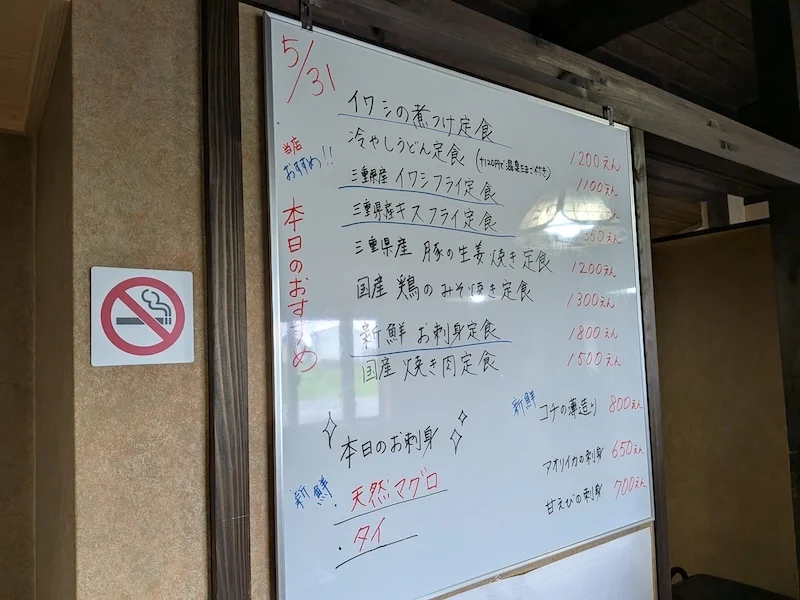 5/31
当店
おすすめ!!
本日のおすすめ
イワシの煮つけ定食 1200えん
冷やしうどん定食 (+120円で温泉玉子付き) 1100えん
三重県産 イワシフライ定食
三重県産キスフライ定食
三重県産 豚の生姜焼き定食 1200えん
国産 鶏のみそ焼き定食 1300えん
新鮮 お刺身定食 1800えん
国産 焼き肉定食 1500えん
本日のお刺身
新鮮 ・天然マグロ
・タイ
新鮮 コチの薄造り 800えん
アオリイカの刺身 650えん
甘えびの刺身 700えん